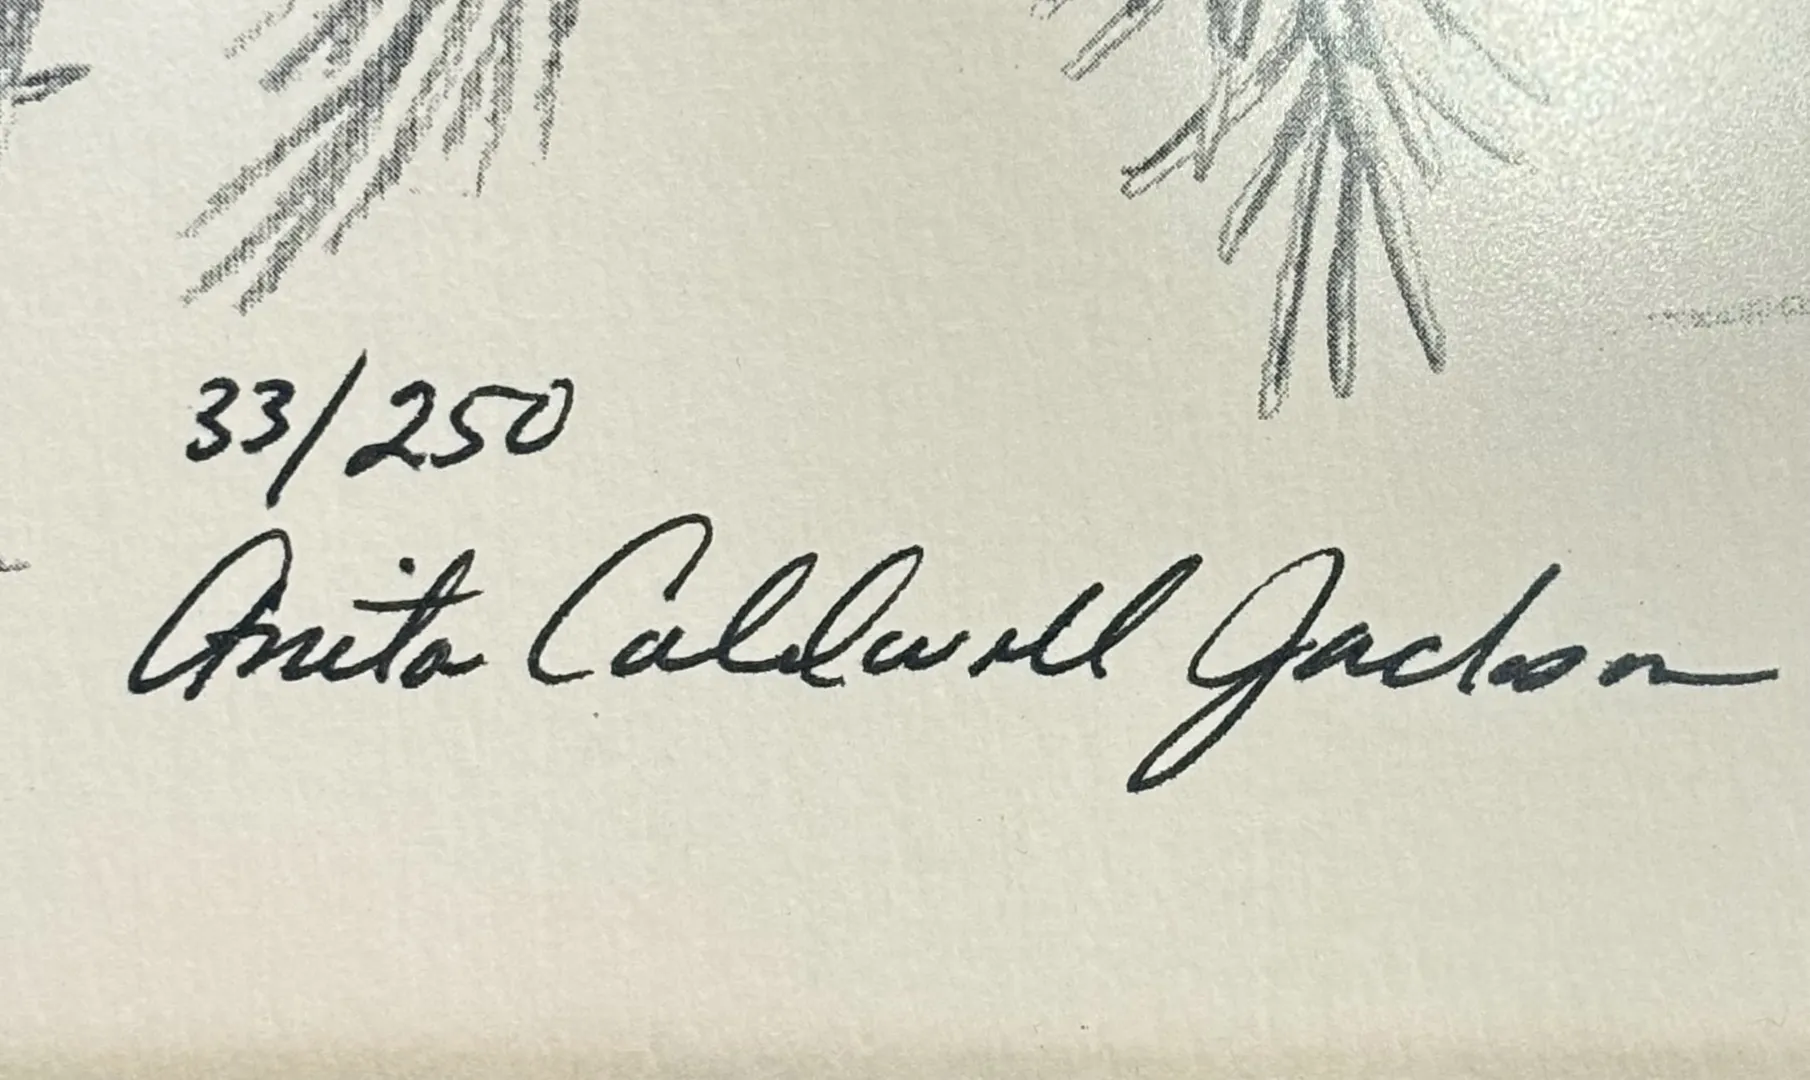 33/250
Anita Caldwell Jackson